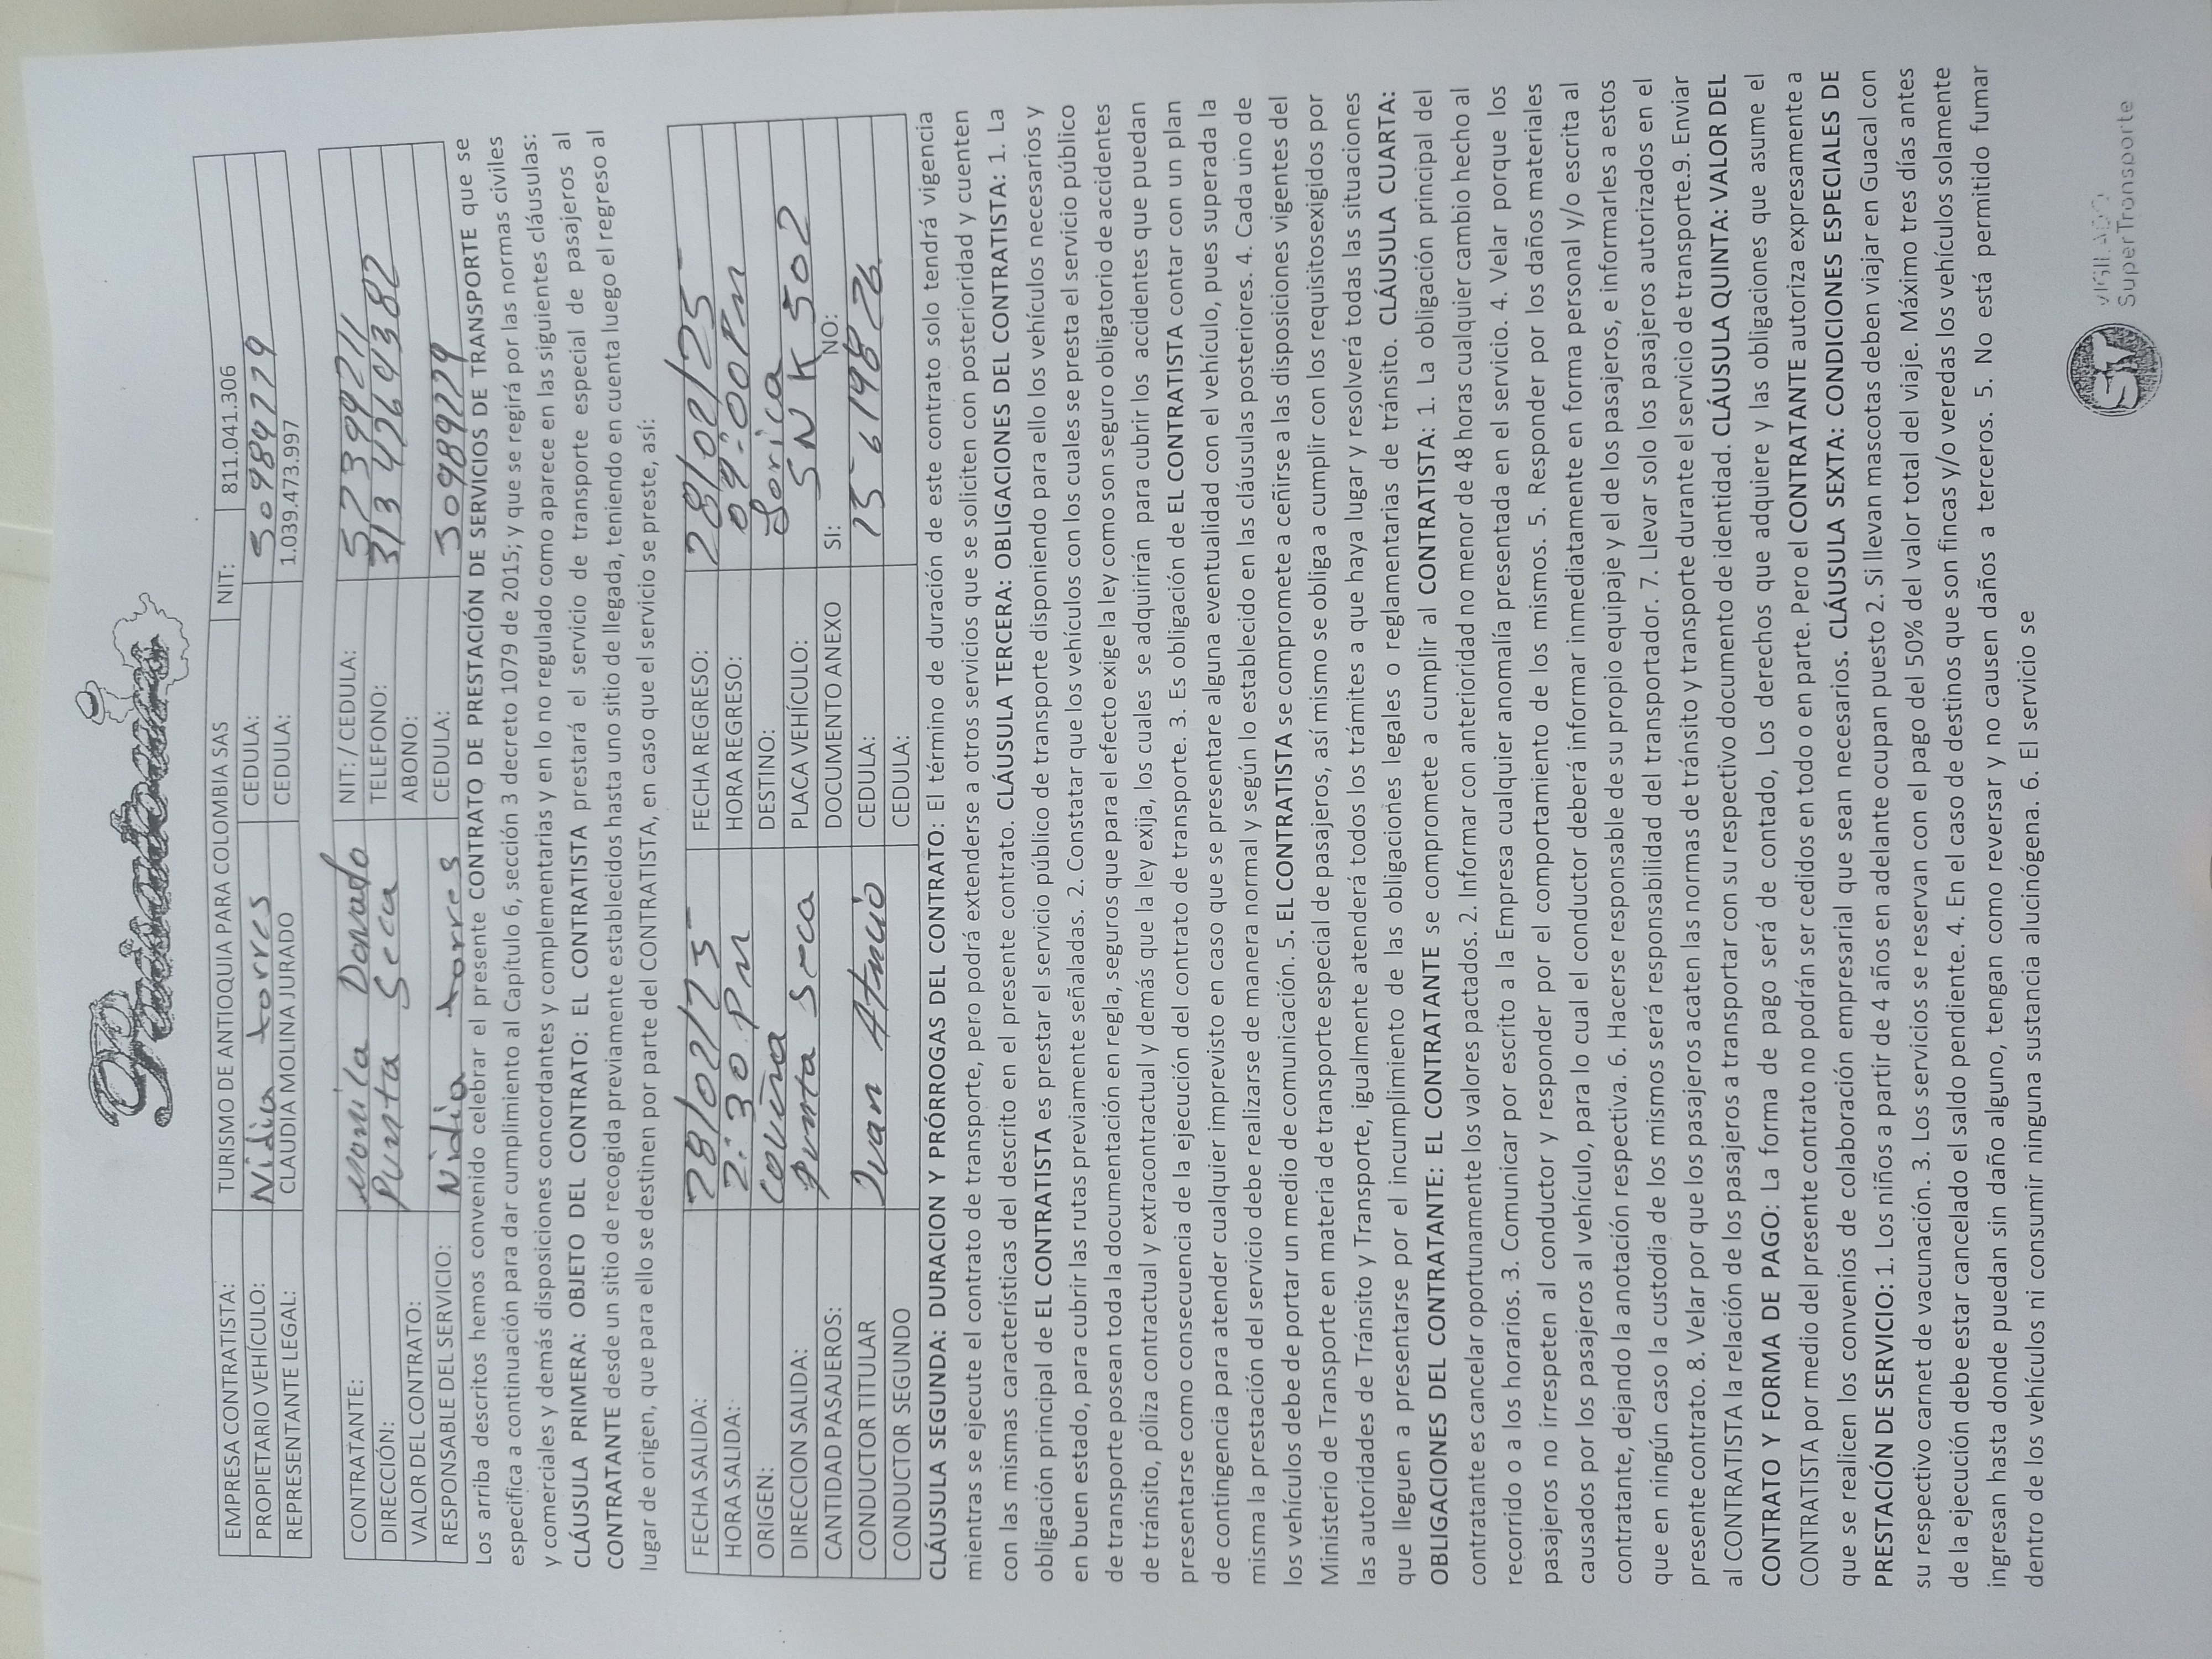 EMPRESA CONTRATISTA: TURISMO DE ANTIOQUIA PARA COLOMBIA SAS NIT: 811.041.306
PROPIETARIO VEHÍCULO: Nidia torres CEDULA:
REPRESENTANTE LEGAL: CLAUDIA MOLINA JURADO CEDULA: 1.039.473.997
CONTRATANTE: Donado NIT: / CEDULA:
DIRECCIÓN: Punta Seca TELEFONO: 313 4264382
VALOR DEL CONTRATO: ABONO:
RESPONSABLE DEL SERVICIO: Nidia torres CEDULA:
Los arriba descritos hemos convenido celebrar el presente CONTRATO DE PRESTACIÓN DE SERVICIOS DE TRANSPORTE que se
especifica a continuación para dar cumplimiento al Capítulo 6, sección 3 decreto 1079 de 2015; y que se regirá por las normas civiles
y comerciales y demás disposiciones concordantes y complementarias y en lo no regulado como aparece en las siguientes cláusulas:
CLÁUSULA PRIMERA: OBJETO DEL CONTRATO: EL CONTRATISTA prestará el servicio de transporte especial de pasajeros al
CONTRATANTE desde un sitio de recogida previamente establecidos hasta uno sitio de llegada, teniendo en cuenta luego el regreso al
lugar de origen, que para ello se destinen por parte del CONTRATISTA, en caso que el servicio se preste, así:
FECHA SALIDA: 28/02/25 FECHA REGRESO: 28/02/25
HORA SALIDA: 2:30 PM HORA REGRESO: 09:00 PM
ORIGEN: Coveña DESTINO: Lorica
DIRECCION SALIDA: Punta Seca PLACA VEHÍCULO: SNK 502
CANTIDAD PASAJEROS: DOCUMENTO ANEXO SI: NO:
CONDUCTOR TITULAR Ivan Atencio CEDULA:
CONDUCTOR SEGUNDO CEDULA:
CLÁUSULA SEGUNDA: DURACION Y PRÓRROGAS DEL CONTRATO: El término de duración de este contrato solo tendrá vigencia
mientras se ejecute el contrato de transporte, pero podrá extenderse a otros servicios que se soliciten con posterioridad y cuenten
con las mismas características del descrito en el presente contrato. CLÁUSULA TERCERA: OBLIGACIONES DEL CONTRATISTA: 1. La
obligación principal de EL CONTRATISTA es prestar el servicio público de transporte disponiendo para ello los vehículos necesarios y
en buen estado, para cubrir las rutas previamente señaladas. 2. Constatar que los vehículos con los cuales se presta el servicio público
de transporte posean toda la documentación en regla, seguros que para el efecto exige la ley como son seguro obligatorio de accidentes
de tránsito, póliza contractual y extracontractual y demás que la ley exija, los cuales se adquirirán para cubrir los accidentes que puedan
presentarse como consecuencia de la ejecución del contrato de transporte. 3. Es obligación de EL CONTRATISTA contar con un plan
de contingencia para atender cualquier imprevisto en caso que se presentare alguna eventualidad con el vehículo, pues superada la
misma la prestación del servicio debe realizarse de manera normal y según lo establecido en las cláusulas posteriores. 4. Cada uno de
los vehículos debe de portar un medio de comunicación. 5. EL CONTRATISTA se compromete a ceñirse a las disposiciones vigentes del
Ministerio de Transporte en materia de transporte especial de pasajeros, así mismo se obliga a cumplir con los requisitosexigidos por
las autoridades de Tránsito y Transporte, igualmente atenderá todos los trámites a que haya lugar y resolverá todas las situaciones
que lleguen a presentarse por el incumplimiento de las obligaciones legales o reglamentarias de tránsito. CLÁUSULA CUARTA:
OBLIGACIONES DEL CONTRATANTE: EL CONTRATANTE se compromete a cumplir al CONTRATISTA: 1. La obligación principal del
contratante es cancelar oportunamente los valores pactados. 2. Informar con anterioridad no menor de 48 horas cualquier cambio hecho al
recorrido o a los horarios. 3. Comunicar por escrito a la Empresa cualquier anomalía presentada en el servicio. 4. Velar porque los
pasajeros no irrespeten al conductor y responder por el comportamiento de los mismos. 5. Responder por los daños materiales
causados por los pasajeros al vehículo, para lo cual el conductor deberá informar inmediatamente en forma personal y/o escrita al
contratante, dejando la anotación respectiva. 6. Hacerse responsable de su propio equipaje y el de los pasajeros, e informarles a estos
que en ningún caso la custodia de los mismos será responsabilidad del transportador. 7. Llevar solo los pasajeros autorizados en el
presente contrato. 8. Velar por que los pasajeros acaten las normas de tránsito y transporte durante el servicio de transporte.9. Enviar
al CONTRATISTA la relación de los pasajeros a transportar con su respectivo documento de identidad. CLÁUSULA QUINTA: VALOR DEL
CONTRATO Y FORMA DE PAGO: La forma de pago será de contado, Los derechos que adquiere y las obligaciones que asume el
CONTRATISTA por medio del presente contrato no podrán ser cedidos en todo o en parte. Pero el CONTRATANTE autoriza expresamente a
que se realicen los convenios de colaboración empresarial que sean necesarios. CLÁUSULA SEXTA: CONDICIONES ESPECIALES DE
PRESTACIÓN DE SERVICIO: 1. Los niños a partir de 4 años en adelante ocupan puesto 2. Si llevan mascotas deben viajar en Guacal con
su respectivo carnet de vacunación. 3. Los servicios se reservan con el pago del 50% del valor total del viaje. Máximo tres días antes
de la ejecución debe estar cancelado el saldo pendiente. 4. En el caso de destinos que son fincas y/o veredas los vehículos solamente
ingresan hasta donde puedan sin daño alguno, tengan como reversar y no causen daños a terceros. 5. No está permitido fumar
dentro de los vehículos ni consumir ninguna sustancia alucinógena. 6. El servicio se
VIGILADO
SuperTransporte